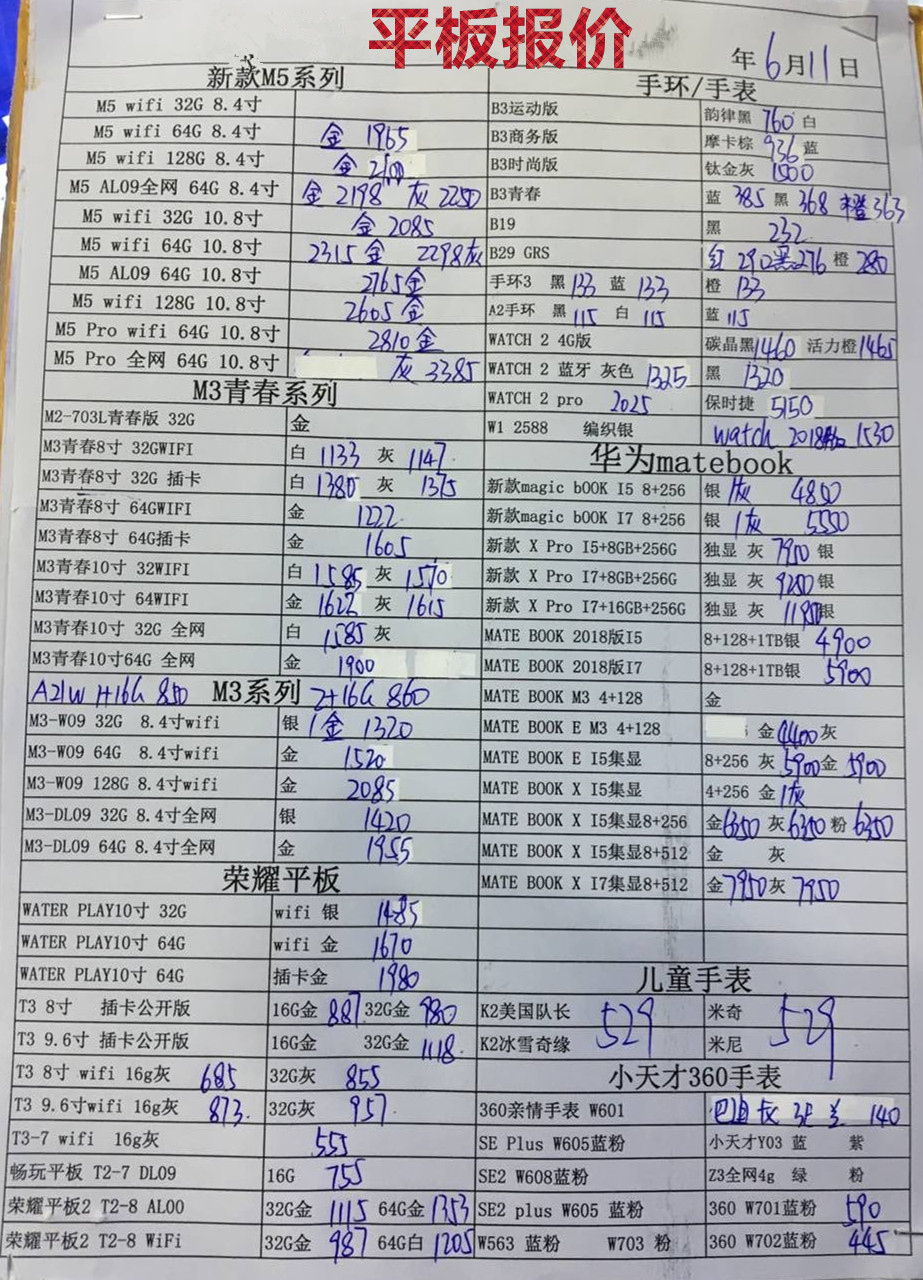 平板报价
年6月11日
新款M5系列
M5 wifi 32G 8.4寸
M5 wifi 64G 8.4寸 金 1965
M5 wifi 128G 8.4寸 金
M5 AL09全网 64G 8.4寸 金 2198 灰 2250
M5 wifi 32G 10.8寸 金 2085
M5 wifi 64G 10.8寸 2315金 2298灰
M5 AL09 64G 10.8寸 2765金
M5 wifi 128G 10.8寸 2605金
M5 Pro wifi 64G 10.8寸 2810金
M5 Pro 全网 64G 10.8寸 灰 3385
M3青春系列
M2-703L青春版 32G 金
M3青春8寸 32GWIFI 白 1133 灰 1147
M3青春8寸 32G 插卡 白 1380 灰 1375
M3青春8寸 64GWIFI 金 1222
M3青春8寸 64G插卡 金 1605
M3青春10寸 32WIFI 白 1585 灰 1570
M3青春10寸 64WIFI 金 1622 灰 1615
M3青春10寸 32G 全网 白 1585 灰
M3青春10寸64G 全网 金 1900
A21W 1+16G 850 M3系列 2+16G 860
M3-W09 32G 8.4寸wifi 银 1金 1320
M3-W09 64G 8.4寸wifi 金 1520
M3-W09 128G 8.4寸wifi 金 2085
M3-DL09 32G 8.4寸全网 银 1420
M3-DL09 64G 8.4寸全网 金 1955
荣耀平板
WATER PLAY10寸 32G wifi 银 1485
WATER PLAY10寸 64G wifi 金 1670
WATER PLAY10寸 64G 插卡金 1980
T3 8寸 插卡公开版 16G金 887 32G金 980
T3 9.6寸 插卡公开版 16G金 32G金 1118
T3 8寸 wifi 16g灰 685 32G灰 855
T3 9.6寸wifi 16g灰 873 32G灰 957
T3-7 wifi 16g灰 555
畅玩平板 T2-7 DL09 16G 755
荣耀平板2 T2-8 AL00 32G金 1115 64G金 1353
荣耀平板2 T2-8 WiFi 32G金 987 64G白 1205
手环/手表
B3运动版 韵律黑 760 白
B3商务版 摩卡棕 936 蓝
B3时尚版 钛金灰 1500
B3青春 蓝 385 黑 368 橙363
B19 黑 232
B29 GRS 红 290黑276 橙 280
手环3 黑 133 蓝 133 橙 133
A2手环 黑 115 白 115 蓝 115
WATCH 2 4G版 碳晶黑1460 活力橙1465
WATCH 2 蓝牙 灰色 1325 黑 1320
WATCH 2 pro 2025 保时捷 5150
W1 2588 编织银 watch 2018 1530
华为matebook
新款magic bOOK I5 8+256 银 1灰 4850
新款magic bOOK I7 8+256 银 1灰 5550
新款 X Pro I5+8GB+256G 独显 灰 7950 银
新款 X Pro I7+8GB+256G 独显 灰 9250 银
新款 X Pro I7+16GB+256G 独显 灰 11950银
MATE BOOK 2018版I5 8+128+1TB银 4900
MATE BOOK 2018版I7 8+128+1TB银 5900
MATE BOOK M3 4+128 金
MATE BOOK E M3 4+128 金4400灰
MATE BOOK E I5集显 8+256 灰5900金 5900
MATE BOOK X I5集显 4+256 金1灰
MATE BOOK X I5集显8+256 金6350 灰6350 粉6350
MATE BOOK X I5集显8+512 金 灰
MATE BOOK X I7集显8+512 金7950灰 7950
儿童手表
K2美国队长 529 米奇 529
K2冰雪奇缘 米尼
小天才360手表
360亲情手表 W601 140
SE Plus W605蓝粉 小天才Y03 蓝 紫
SE2 W608蓝粉 Z3全网4g 绿 粉
SE2 plus W605 蓝粉 360 W701蓝粉 590
W563 蓝粉 W703 粉 360 W702蓝粉 445